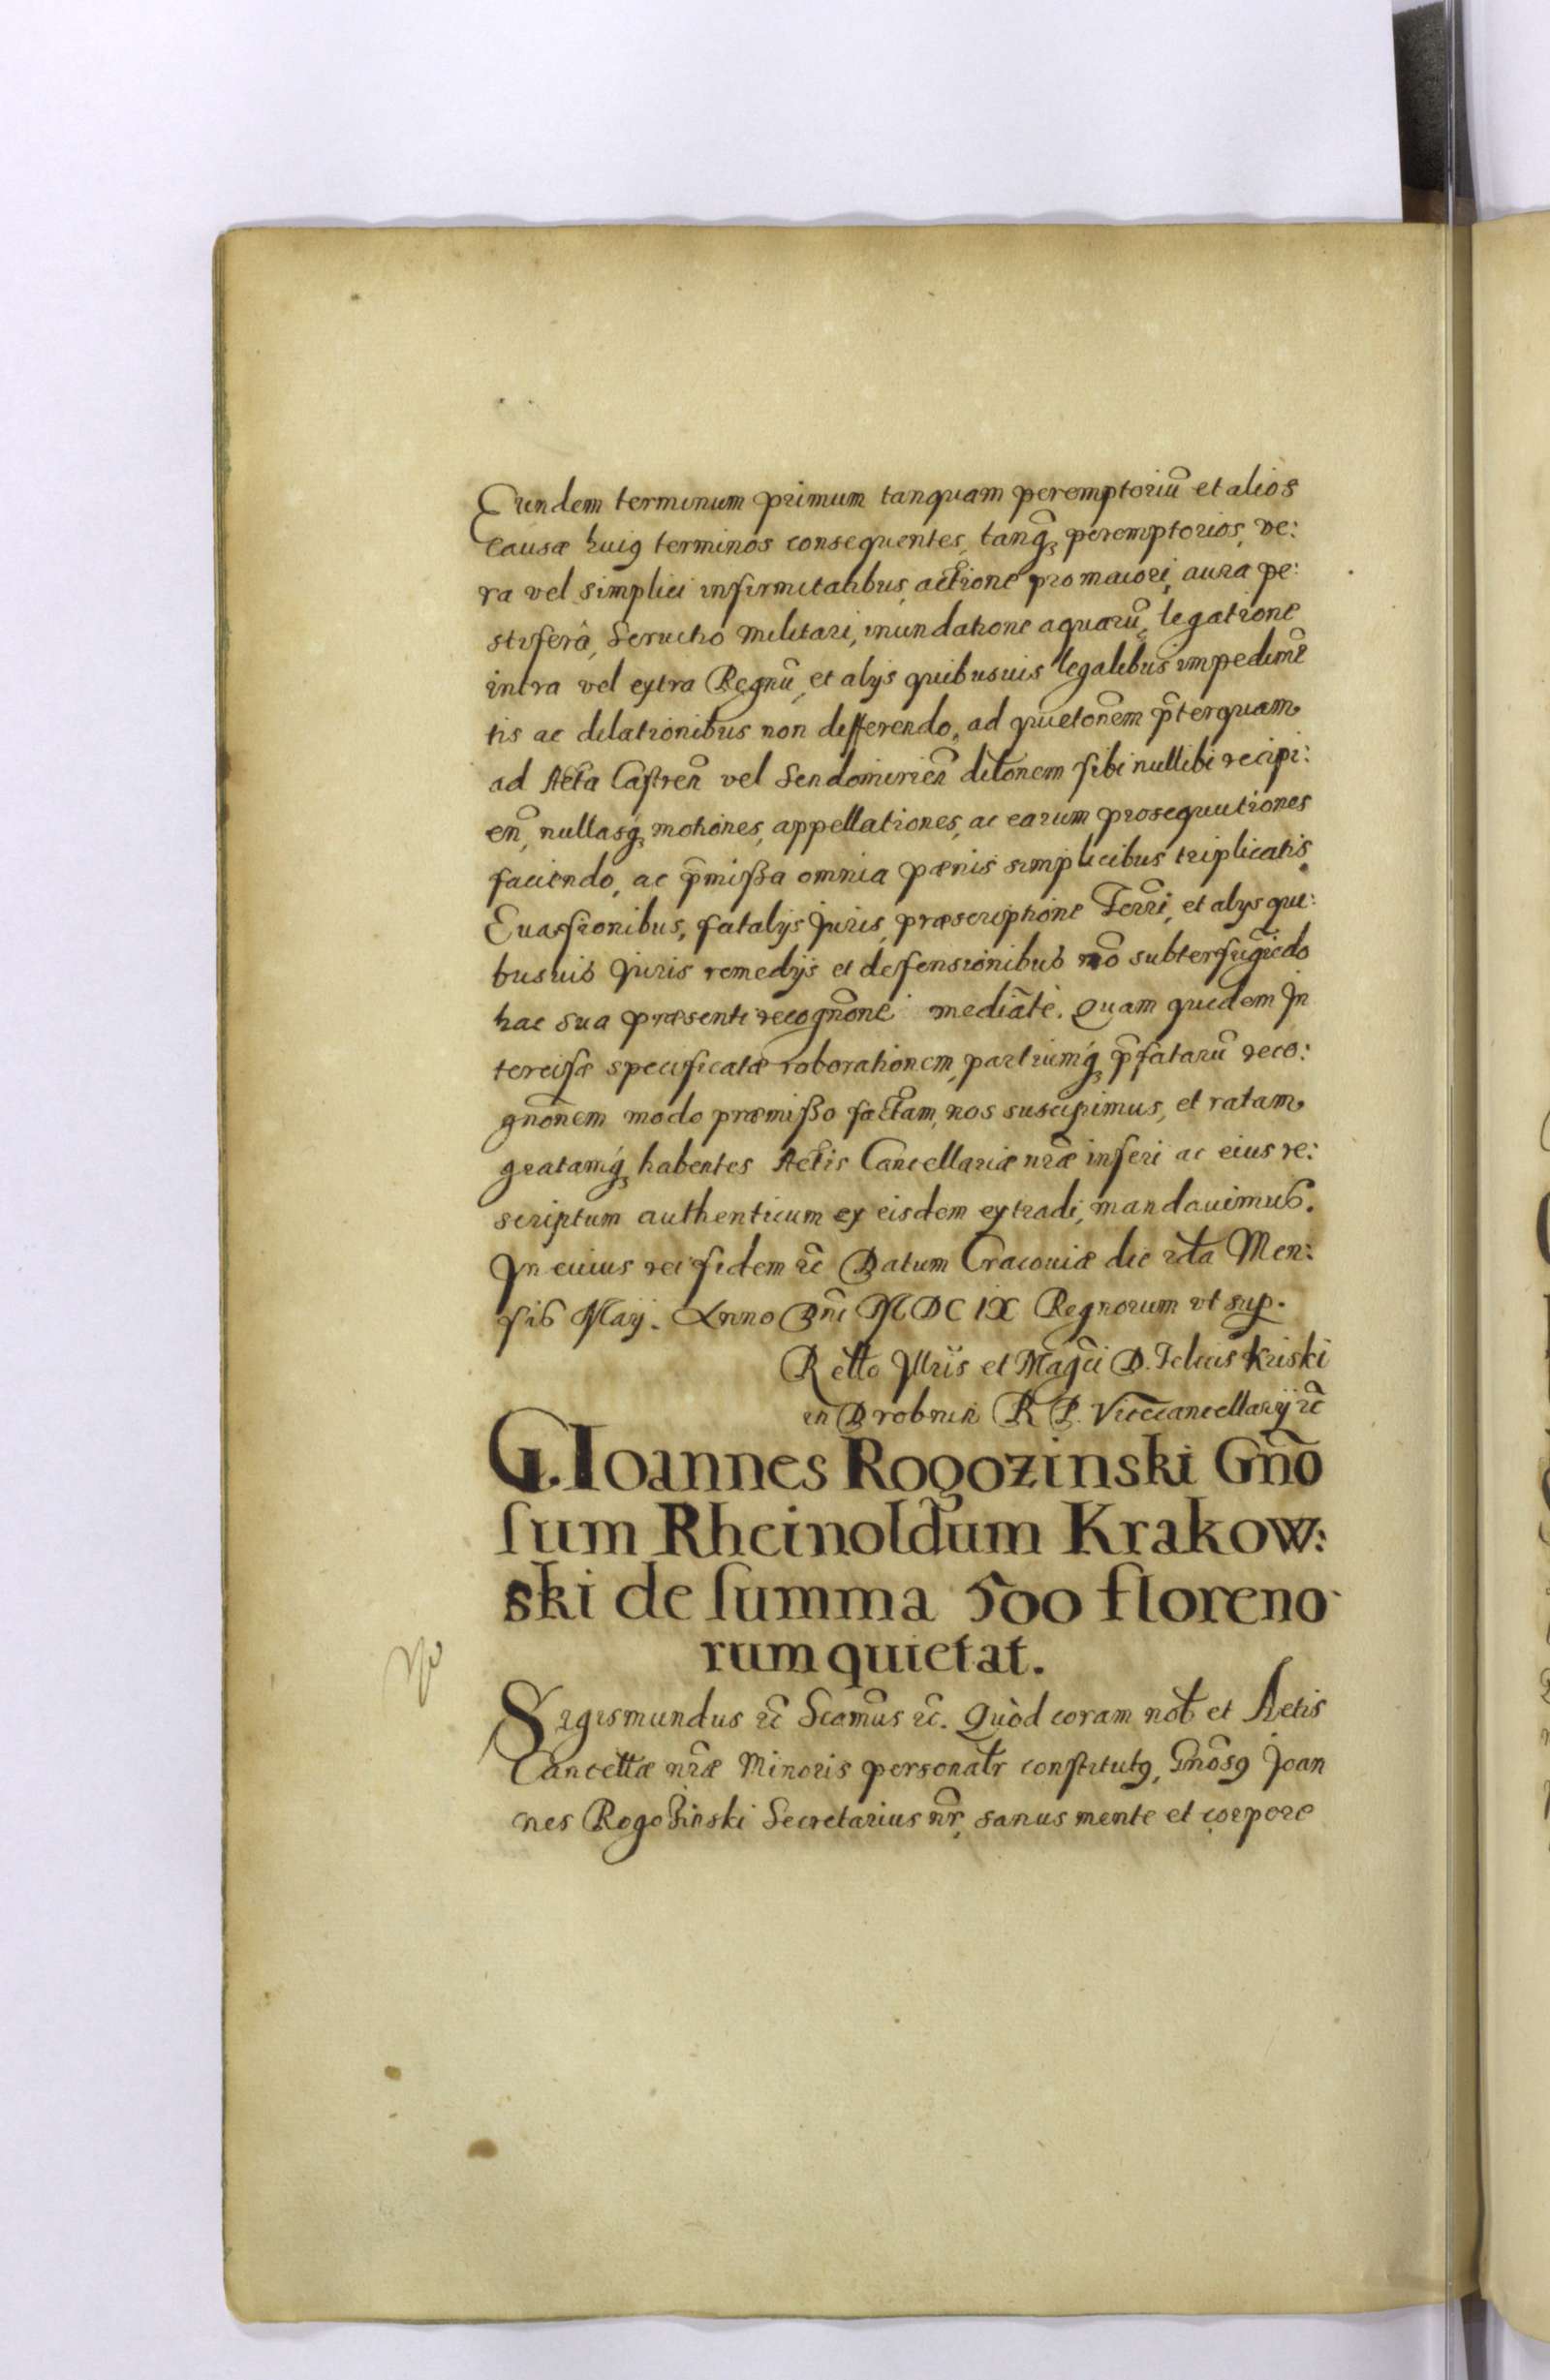 Eundem terminum primum tanquam peremptoriũ et alios
causæ huiꝰ terminos consequentes, tanqꝫ peremptorios, ve:
ra vel simplici infirmitatibus, actione pro maiori, aura pe:
stifera, Seruitio militari, inundatione aquarũ, legatione
intra vel extra Regnũ, et alijs quibusuis legalibus impedimẽ
tis ac dilationibus non differendo, ad quietõnem p̃terquam
ad Acta Castreñ vel Sendomirieñ ditõnem sibi nullibi recipi:
eñ, nullasqꝫ motiones, appellationes, ac earum prosequutiones
faciendo, ac p̃mißa omnia pænis simplicibus triplicatis,
Euassionibus, fatalijs Juris, præscriptione Terrĩ, et alijs qui:
busuis Juris remedijs et defensionibus nõ subterfugiẽdo
hac sua præsenti recognõne mediãte. Quam quidem In
tercisæ specificatæ roborationem, partiumqꝫ p̃fatarũ reco:
gnõnem modo præmißo factam, nos suscipimus, et ratam
gratamqꝫ habentes Actis Cancellariæ nr̃æ inseri ac eius re:
scriptum authenticum ex eisdem extradi, mandauimus.
In cuius rei fidem ec̃ Datum Cracouiæ die 2da Men:
sis Maij. Anno Dnĩ MDCIX Regnorum vt sup.
Retto Jllris et Magci D. Felicis Kriski
in Drobnin R P. Vicecancellarij ec̃
G. Ioannes Rogozinski Gnõ
sum Rheinoldum Krakow:
ski de summa 500 floreno
rum quietat.
Sigismundus ec̃ Scam̃us ec̃. Quòd coram nob et Actis
Cancettæ nr̃æ Minoris personatr constitutꝰ, Gnõsꝰ Joan
nes Rogoźinski Secretarius nr̃, sanus mente et corpore